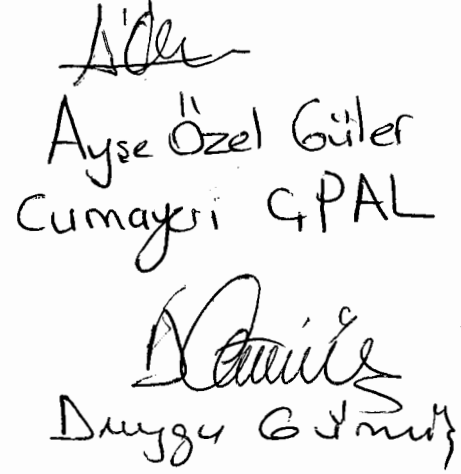 Ayşe Özel Güler
Cumayeri ÇPAL
Duygu Gümüş